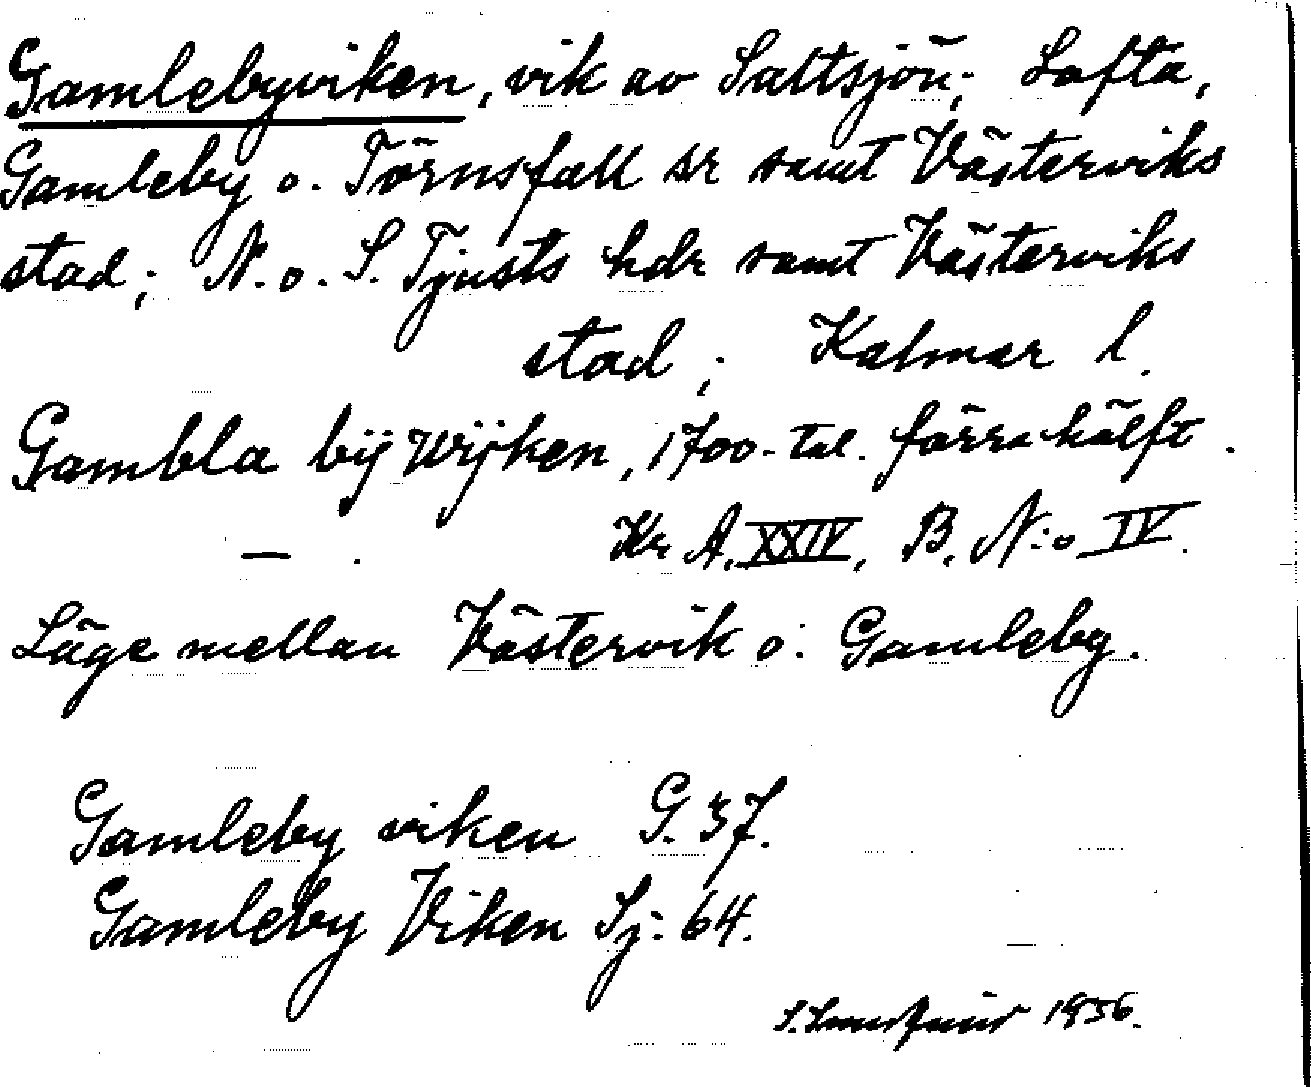 Gamlebyviken, vik av Saltsjön; Lofta,
Gamleby o. Törnsfall sr samt Västerviks
stad; N. o. S. Tjusts hdr samt Västerviks
stad; Kalmar l.
Gambla bÿ Wÿken, 1700-tal. förra hälft.
— . Kr A. XXIV, B. N:o IV.
Läge mellan Västervik o. Gamleby.
Gamleby viken G. 37.
Gamleby Viken Sj: 64.
S. 1956.